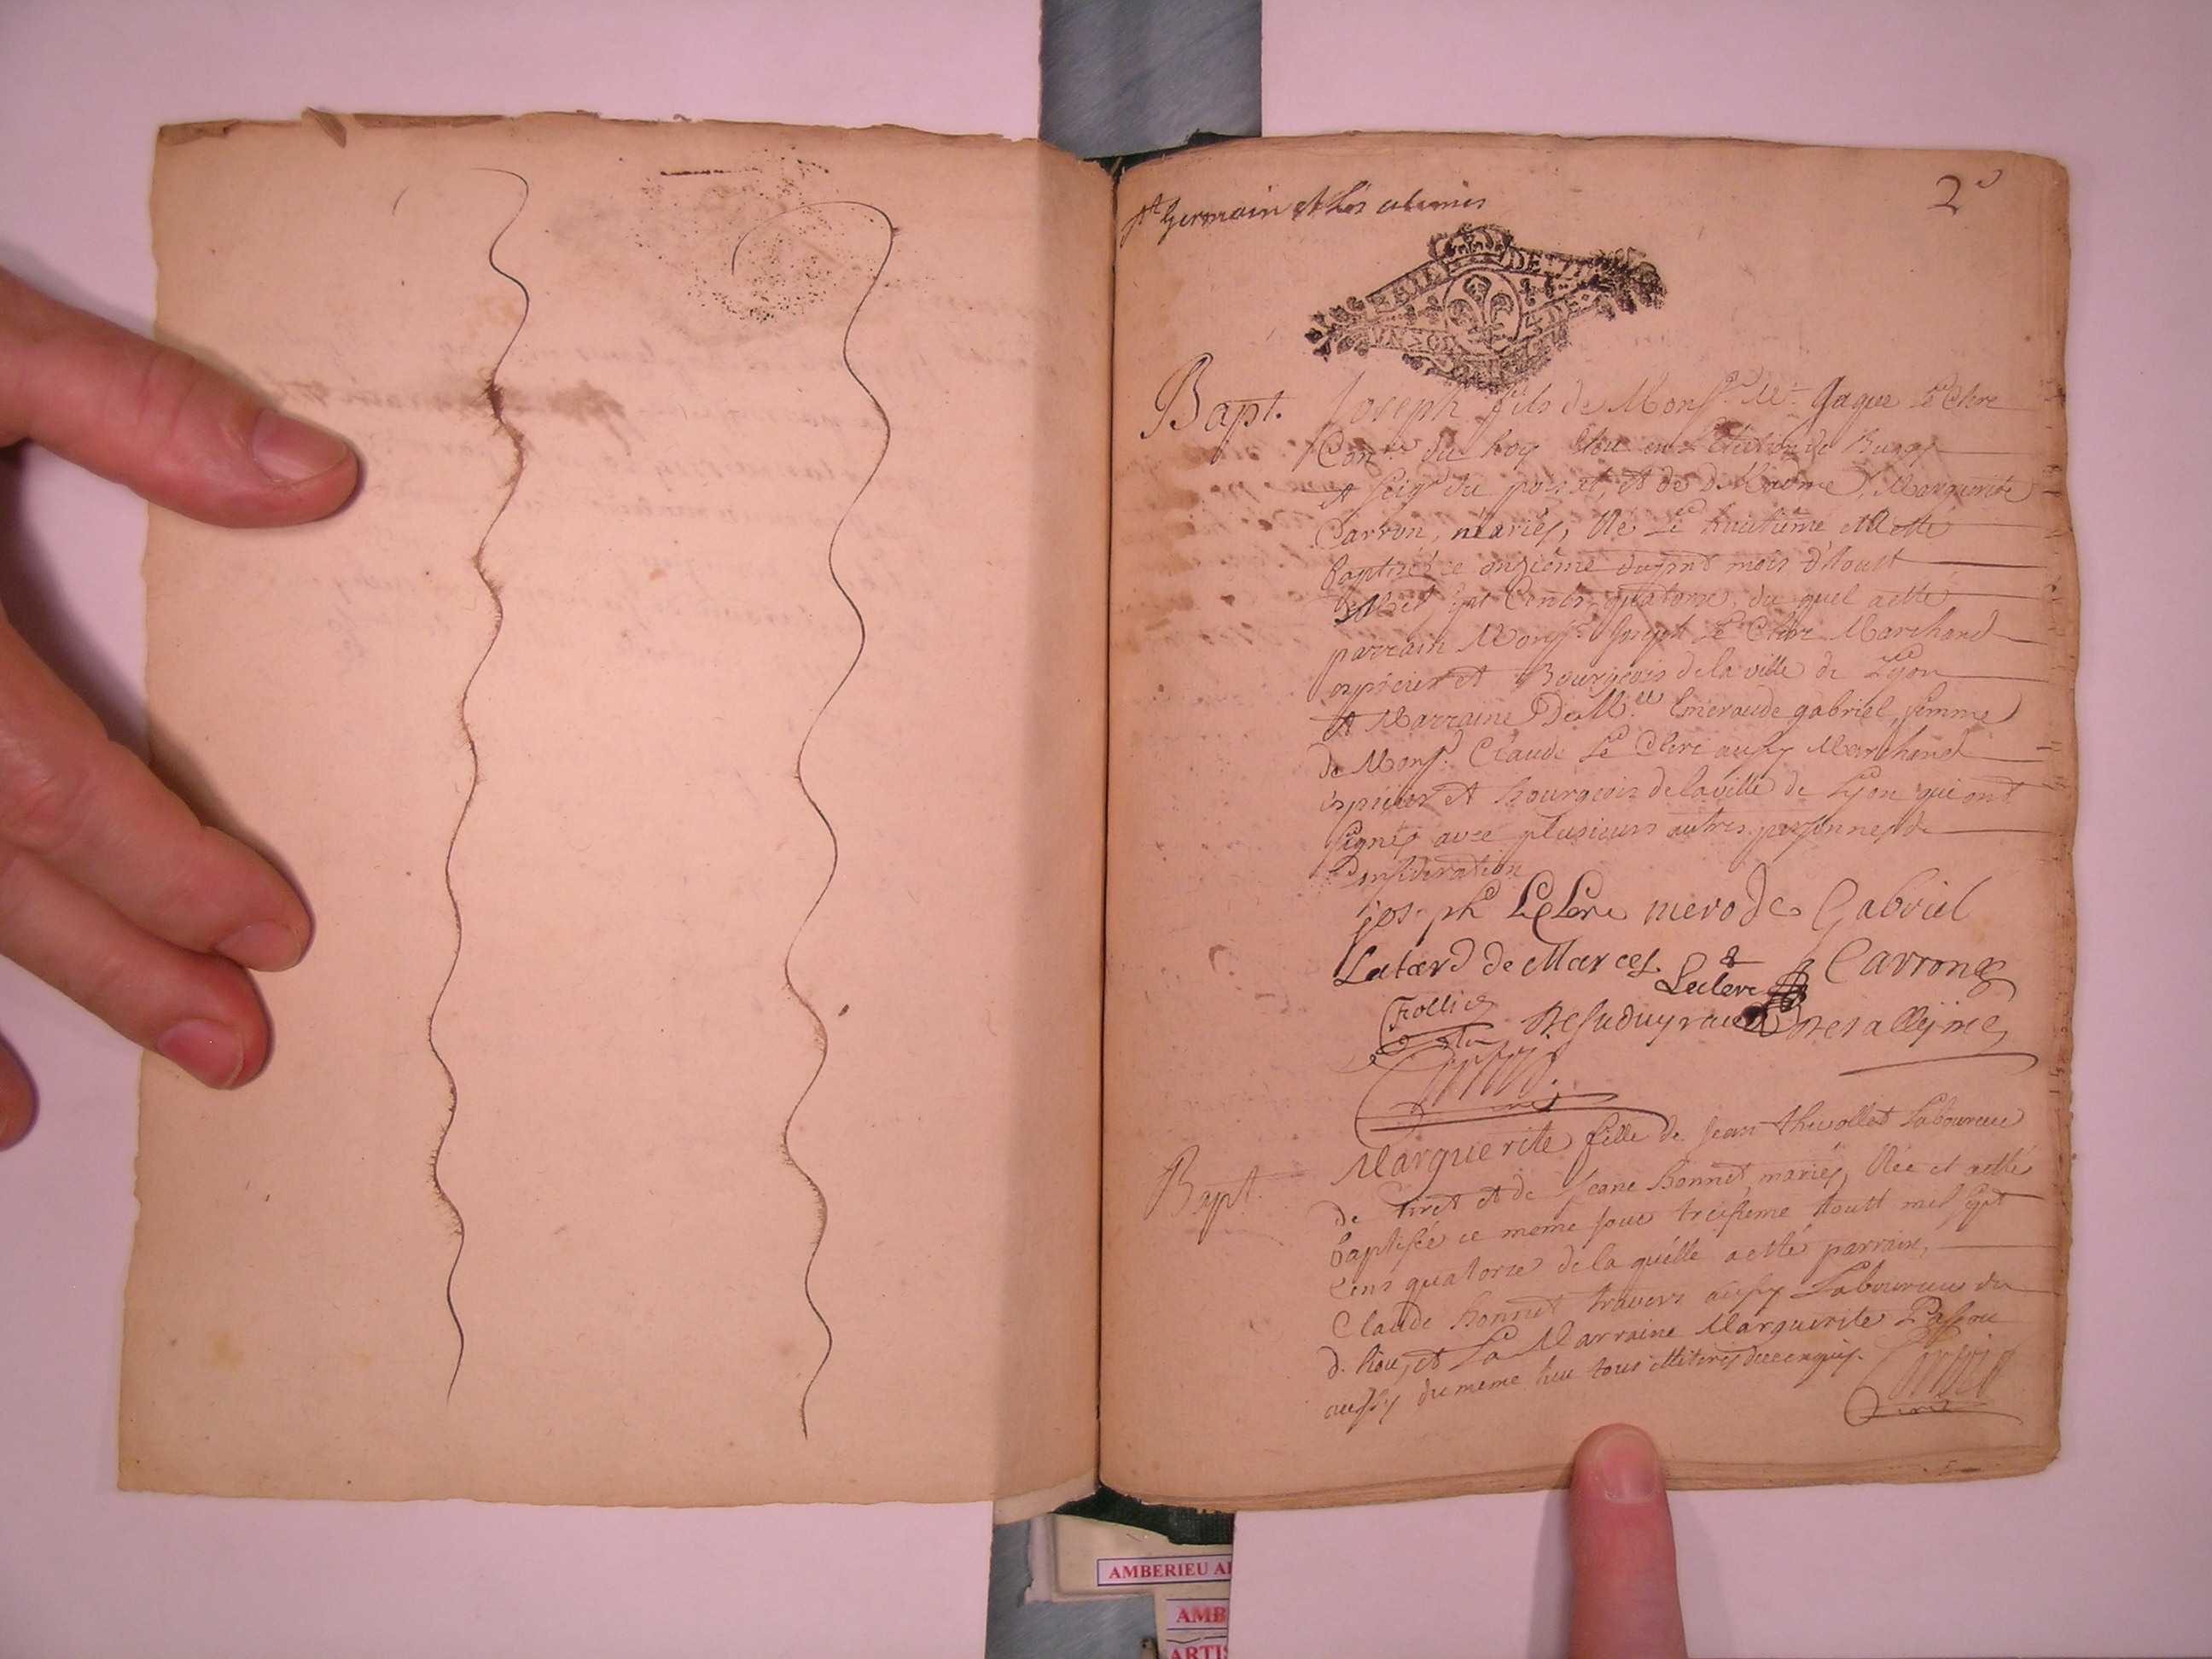 St Germain et Les alimes
2e
Bapt. Joseph fils de Monsr. Mre. Jaque Le Clere
Coner du Roy Eleu en L'Election de Bugey
et seigr du poizat, et de de Madme Marguerite
Carron, mariés, Né Le huictieme et Aesté
baptisé ce onzieme dususd mois d'Aoust
Mil sept Cents quatorze, du quel aesté
parrain Monsr. Joseph Le Clere Marchand
espicier et Bourgeois de la ville de Lyon
et Marraine DeMlle Emeraude gabriel, femme
de Monsr. Claude Le Clere aussy Marchand
espicier et bourgeois de la ville de Lyon qui ont
signés avec plusieurs autres personnes de
Consideration
joseph LeClere merode Gabriel
Lutard de Marcel Leclere Carron
Trollier
Marguerite fille de Jean thevollet Laboureur
Bapt. de tiret et de Jeane Bonnet, mariés, Née et aesté
baptisée ce meme jour treisieme Aoust mil sept
cens quatorze de la quelle aesté parrain,
Claude bonnet travers aussy Laboureur du
d. lieu, et La Marraine Marguerite
aussy du meme lieu tous illiterés de ce enquis.